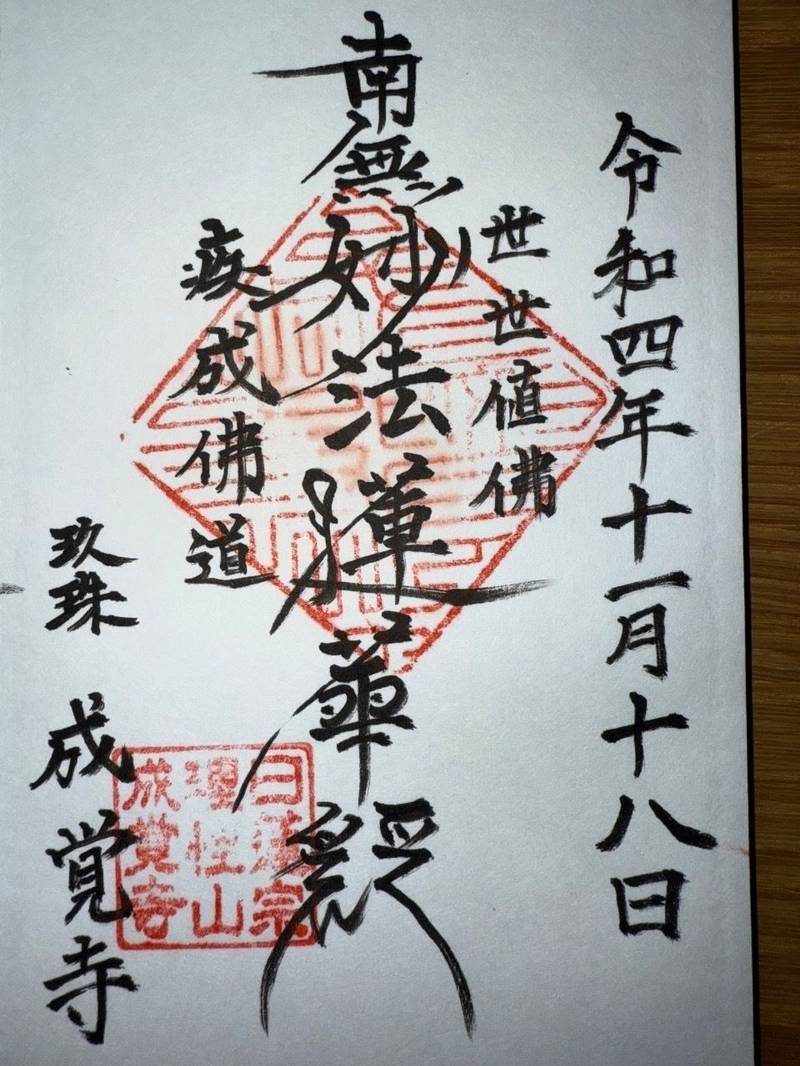 令和四年十一月十八日
世世値佛
南無妙法蓮華經
疾成佛道
玖珠 成覚寺
日蓮宗
理性山
成覚寺